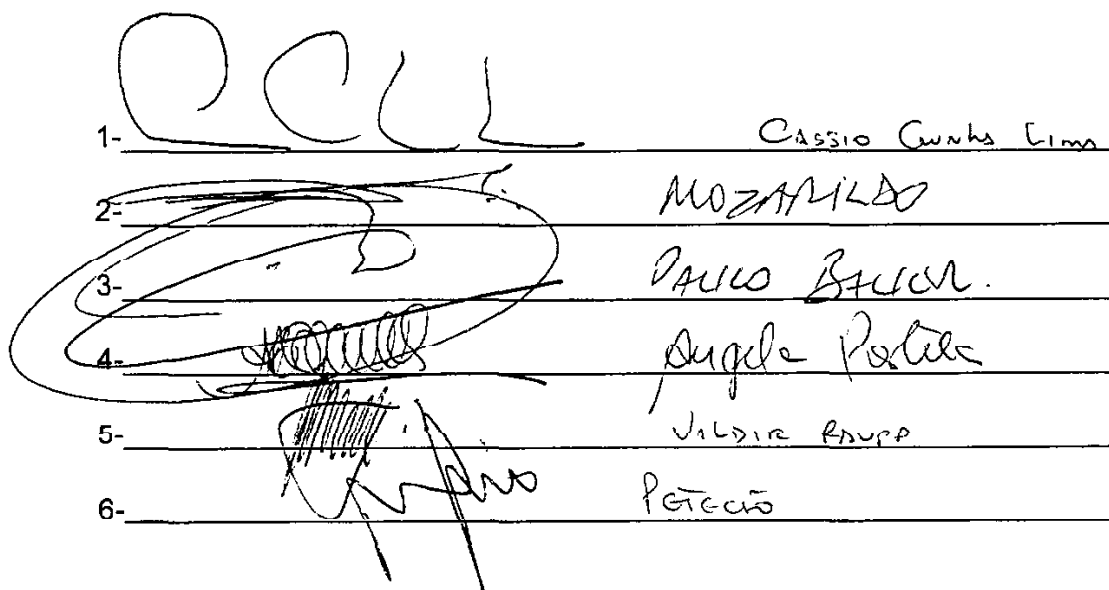 1- Cassio Cunha Lima
2- MOZARILDO
3- PAULO BAUER.
4- Angela Portela
5- VALDIR RAUPP
6- PETECÃO